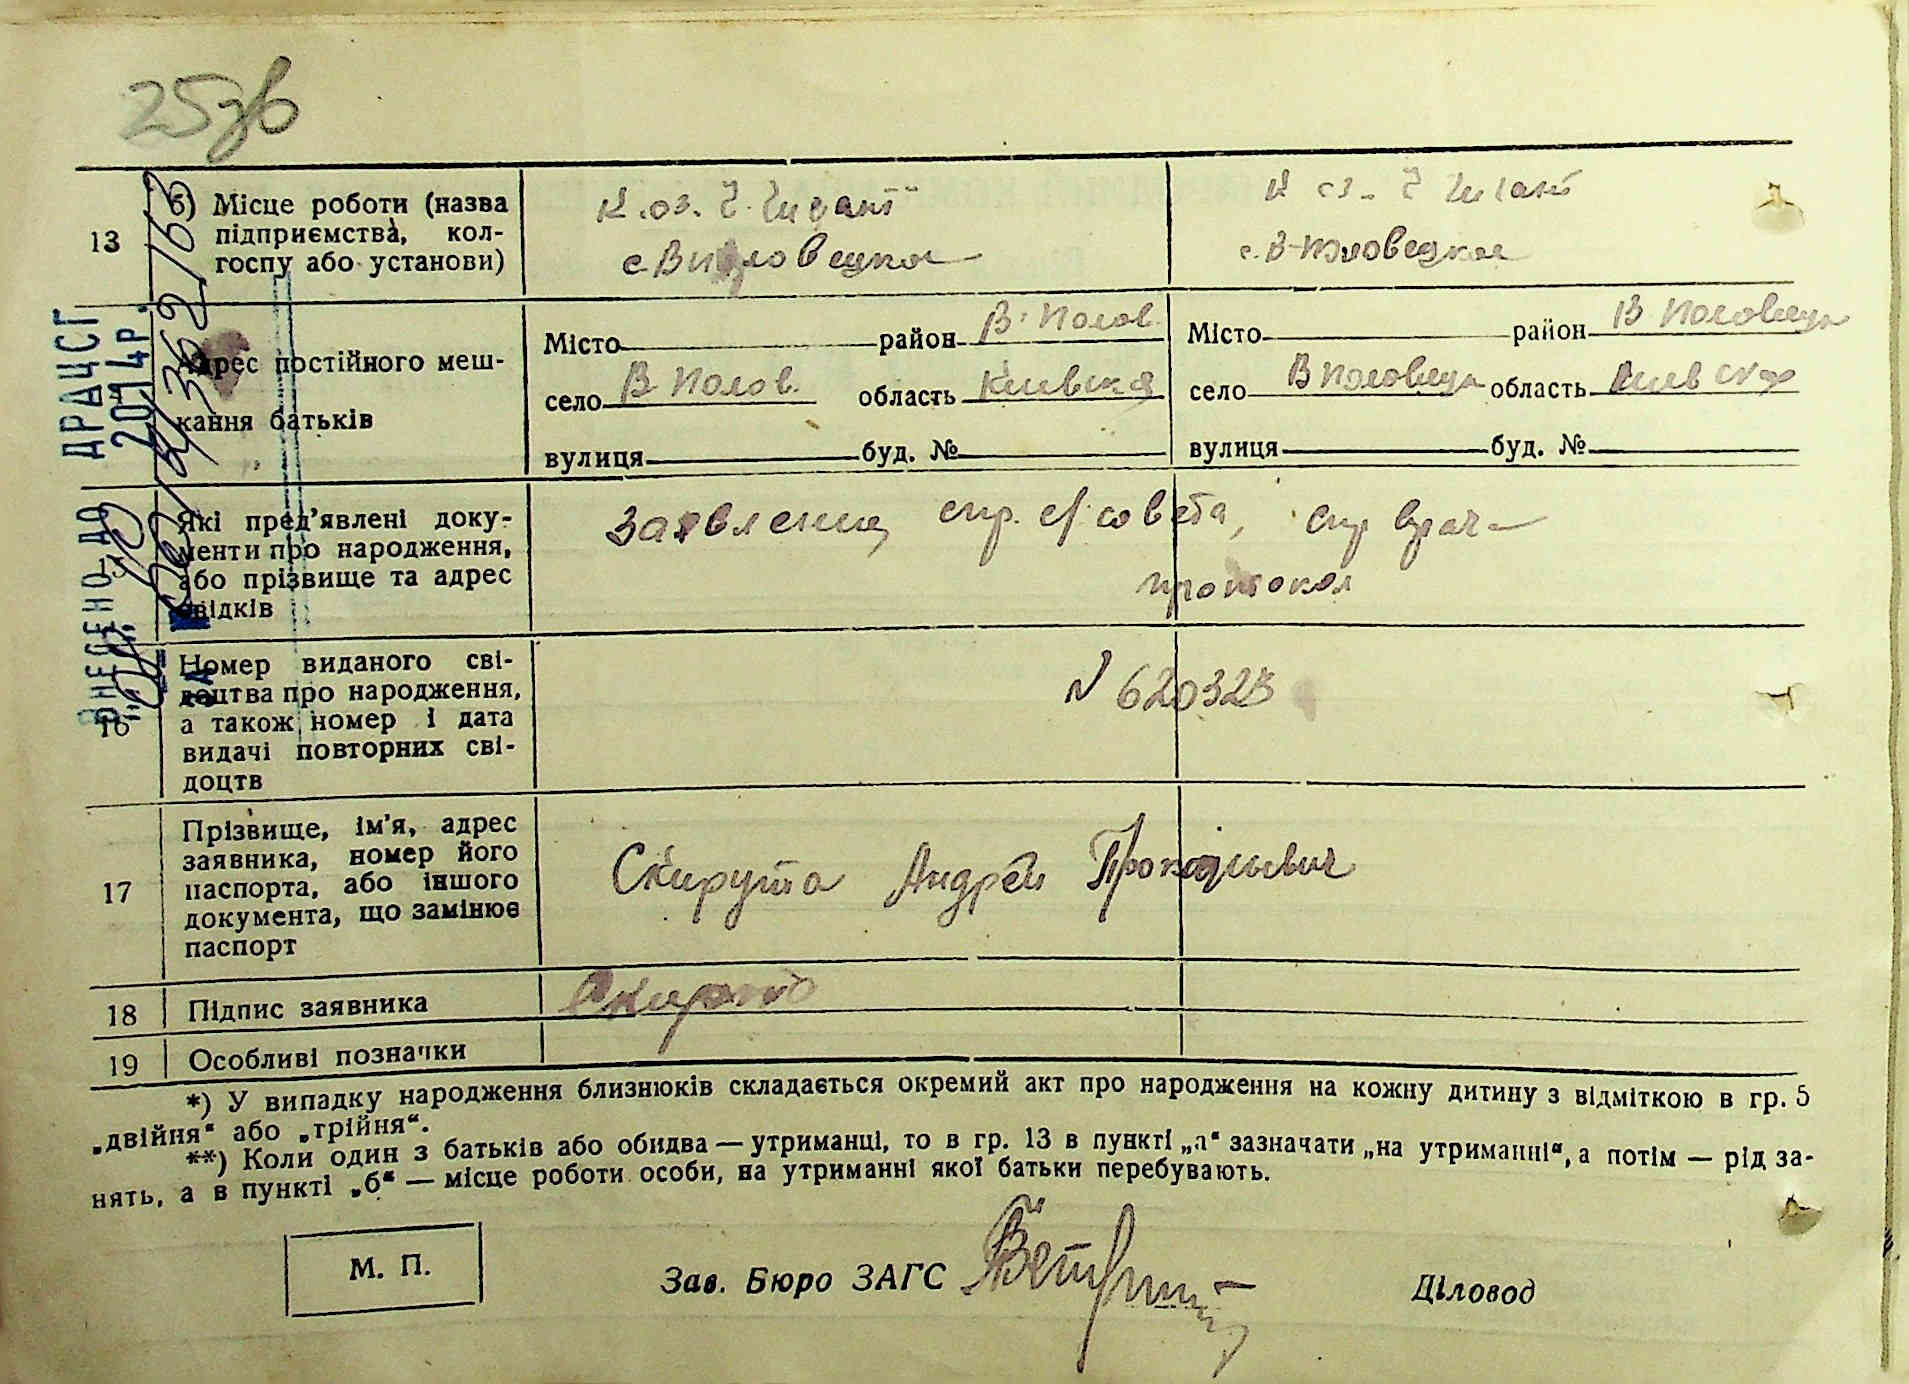 25зв
13
б) Місце роботи (назва
підприємства, кол-
госпу або установи)
с. В-Половецкое
Адрес постійного меш-
кання батьків
Місто район В. Полов.
село В Полов. область Киевская
вулиця буд. №
Місто район В Половецк
село В Половецк область Киевская
вулиця буд. №
ВНЕСЕНО ДО ДРАЦСГ
2014р.
Які пред'явлені доку-
менти про народження,
або прізвище та адрес
свідків
Заявление, спр. с/совета, спр врача
протокол
16
Номер виданого сві-
доцтва про народження,
а також номер і дата
видачі повторних сві-
доцтв
N 620323
17
Прізвище, ім'я, адрес
заявника, номер його
паспорта, або іншого
документа, що замінює
паспорт
Скирута Андрей Прокофьевич
18
Підпис заявника
19
Особливі позначки
*) У випадку народження близнюків складається окремий акт про народження на кожну дитину з відміткою в гр. 5
„двійня“ або „трійня“.
**) Коли один з батьків або обидва — утриманці, то в гр. 13 в пункті „а“ зазначати „на утриманні“, а потім — рід за-
нять, а в пункті „б“ — місце роботи особи, на утриманні якої батьки перебувають.
М. П.
Зав. Бюро ЗАГС
Діловод